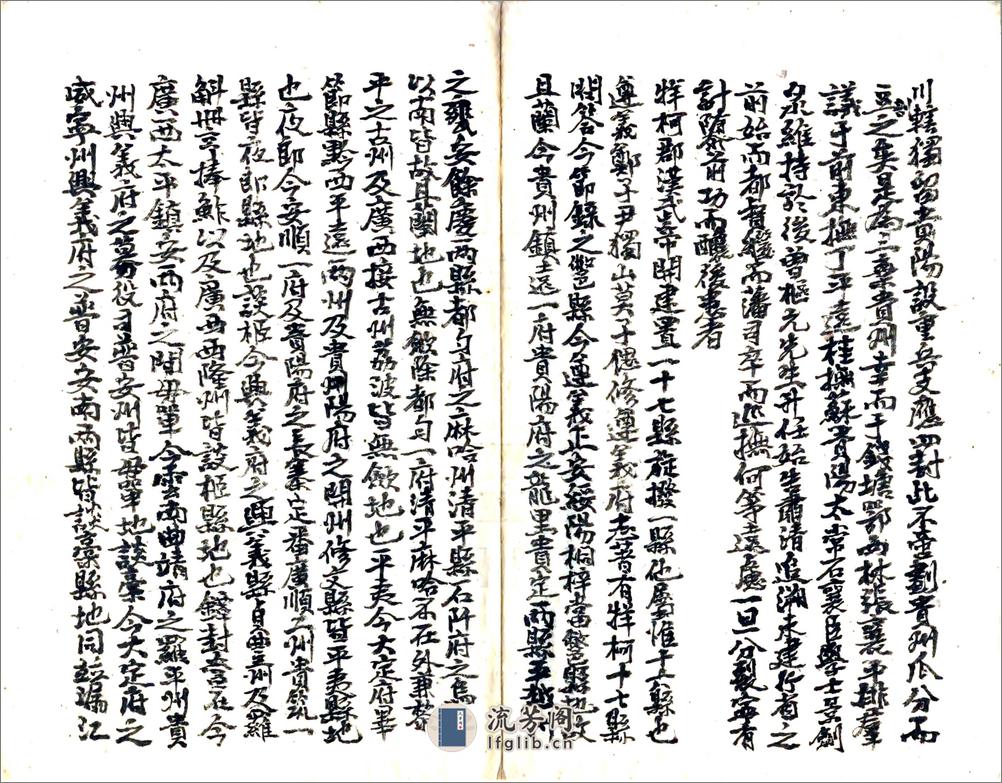 川轄獨留貴陽設重兵文應四封此不啻劃貴州瓜分而
豆之矣是為三桑貴州幸而于錢塘鄂西林張襄平排羣
議于前東撫丁平遠桂撫蘇貴陽太常石襄臣學士景劍
泉維持於後曾樞元先生升任始告肅清追溯未建行省之
前始而都督繼而藩司卒而巡撫何等遠慮一旦分裂寧有
計隳前功而釀後患者
牂柯郡漢武帝開建置一十七縣旋撥一縣他屬惟十六縣也
遵義鄭子尹獨山莫子偲修遵義府志著有牂柯十七縣
問答今節錄之鄨縣今遵義正安綏陽桐梓當鄨縣地故
且蘭今貴州鎮遠一府貴陽府之龍里貴定兩縣平越州
之甕安餘慶兩縣都勻府之麻哈州清平縣石阡府之烏
以南皆故且蘭地也無斂除都勻一府清平麻哈不在外東黎
平之古州及廣西接古州荔波皆無斂地也平夷今大定府畢
節縣黔西平遠兩州及貴陽府之開州修文縣皆平夷縣地
也夜郎今安順一府及貴陽府之長寨定番廣順之州貴筑一
縣皆夜郎縣地也談栀今興義府之興義縣貞豐州及羅
斛冊亨捧鮓以及廣西西隆州皆談栀縣地也錢封當在今
廣西太平鎮安兩府之間毋單今雲南曲靖府之羅平州貴
州興義府之募役司普安州皆毋單地談藁今大定府之
威寧州興義府之普安安南兩縣皆談藁縣地同並漏江
流芳閣
lfglib.cn